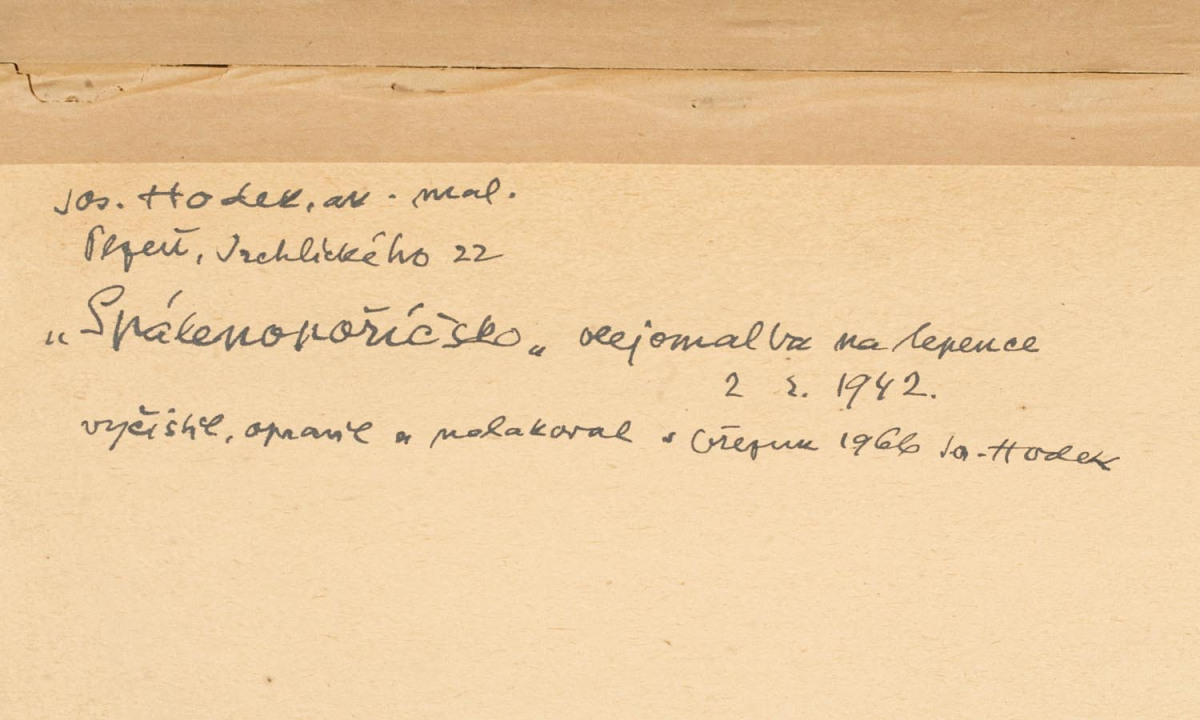 Jos. Hodek, ak. mal.
Plzeň, Vrchlického 22
„Spálenopoříčsko„ olejomalba na lepence
z r. 1942.
vyčistil, opravil a nalakoval v březnu 1966 Jos. Hodek